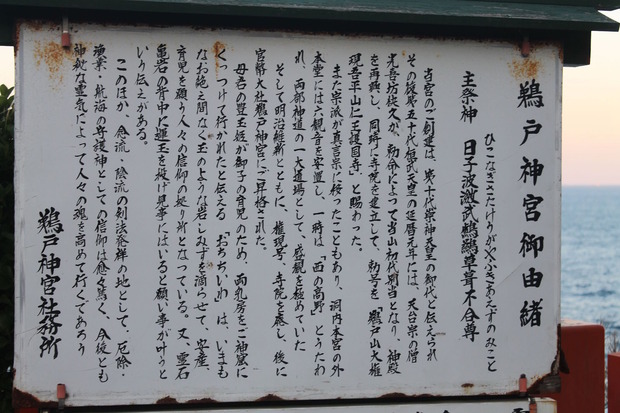 鵜戸神宮御由緒
ひこなぎさたけうがやふきあえずのみこと
主祭神 日子波瀲武鸕鷀草葺不合尊
当宮のご創建は、第十代崇神天皇の御代と伝えられ
その後第五十代桓武天皇の延暦元年には、天台宗の僧
光喜坊快久が、勅命によって当山初代別当となり、神殿
を再興し、同時に寺院を建立して、勅号を「鵜戸山大権
現吾平山仁王護国寺」と賜わった。
また宗派が真言宗に移ったこともあり、洞内本宮の外
本堂には六観音を安置し、一時は「西の高野」とうたわ
れ、両部神道の一大道場として、盛観を極めていた
そして明治維新とともに、権現号・寺院を廃し、後に
官幣大社鵜戸神宮にご昇格された。
母君の豊玉姫が御子の育児のため、両乳房をご神窟に
くっつけて行かれたと伝える「おちちいわ」は、いまも
なお絶え間なく玉のような岩しみずを滴らせて、安産・
育児を願う人々の信仰の拠り所となっている。又、霊石
亀岩の背中に運玉を投げ見事にはいると願い事が叶うと
いう伝えがある。
このほか、念流・陰流の剣法発祥の地として、厄除・
漁業・航海の守護神としての信仰は愈々篤く、今後とも
神秘な霊気によって人々の魂を高めて行くであろう
鵜戸神宮社務所